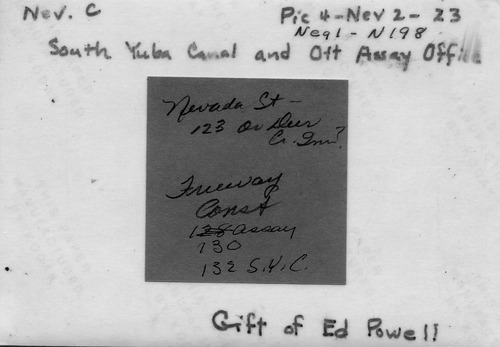 Nev. C
Pic 4-Nev 2-23
Neg1-N198
South Yuba Canal and Ott Assay Office
Nevada St-
123 or Deer
Cr. Inn?
Freeway
Const
128 assay
130
132 S.Y.C.
Gift of Ed Powell